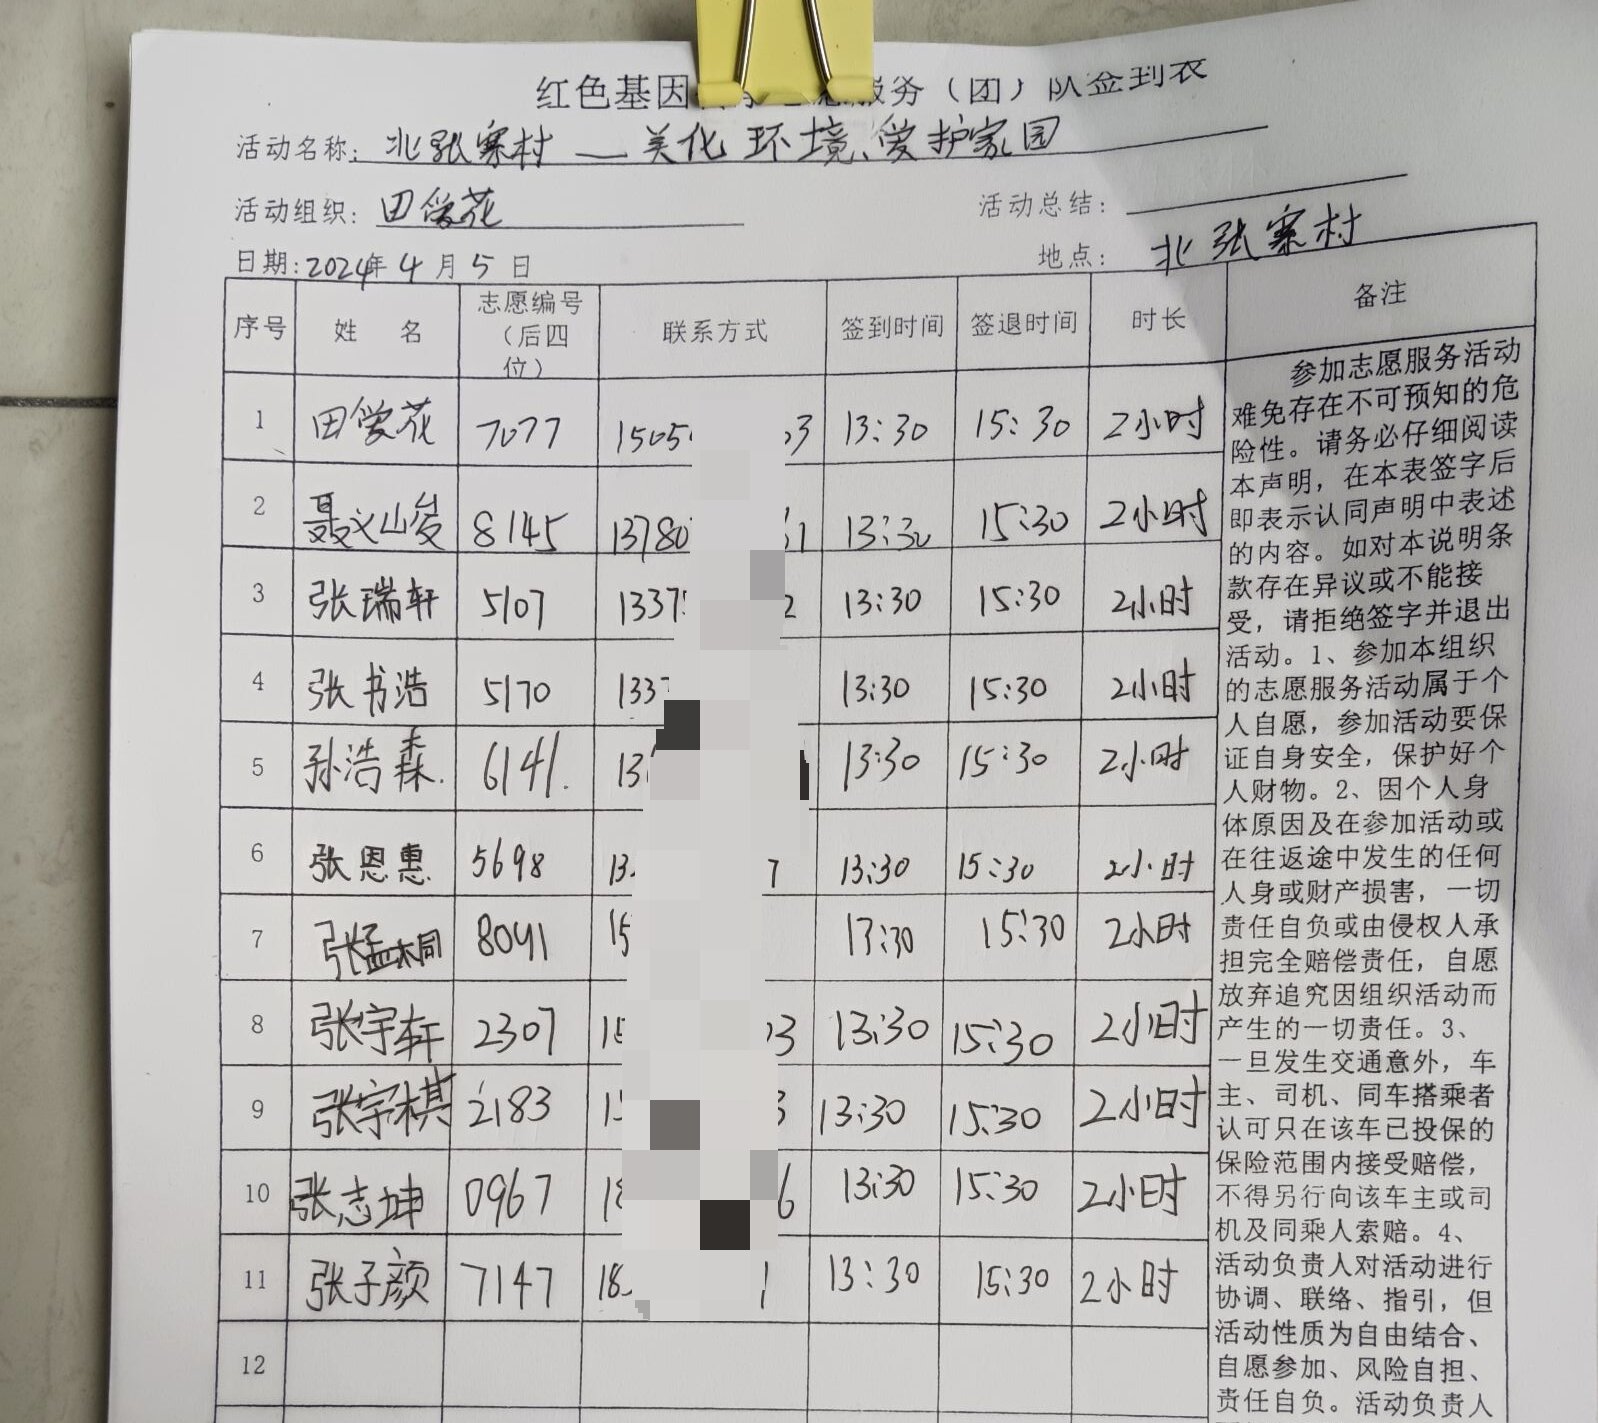 红色基因 服务（团）队签到表
活动名称：北张寨村—美化环境、爱护家园
活动组织：田学花 活动总结：
日期：2024年4月5日 地点：北张寨村
序号 姓名 志愿编号（后四位） 联系方式 签到时间 签退时间 时长 备注
1 田学花 7077 1505 3 13:30 15:30 2小时
2 聂义山 8145 13780 61 13:30 15:30 2小时
3 张瑞轩 5107 1337 2 13:30 15:30 2小时
4 张书浩 5170 133 13:30 15:30 2小时
5 孙浩森. 6141. 13 13:30 15:30 2小时
6 张恩惠. 5698 13 7 13:30 15:30 2小时
7 张孟桐 8091 15 13:30 15:30 2小时
8 张宇轩 2307 15 03 13:30 15:30 2小时
9 张宇棋 2183 15 3 13:30 15:30 2小时
10 张志坤 0967 18 6 13:30 15:30 2小时
11 张子颜 7147 18 1 13:30 15:30 2小时
12
参加志愿服务活动
难免存在不可预知的危
险性。请务必仔细阅读
本声明，在本表签字后
即表示认同声明中表述
的内容。如对本说明条
款存在异议或不能接
受，请拒绝签字并退出
活动。1、参加本组织
的志愿服务活动属于个
人自愿，参加活动要保
证自身安全，保护好个
人财物。2、因个人身
体原因及在参加活动或
在往返途中发生的任何
人身或财产损害，一切
责任自负或由侵权人承
担完全赔偿责任，自愿
放弃追究因组织活动而
产生的一切责任。3、
一旦发生交通意外，车
主、司机、同车搭乘者
认可只在该车已投保的
保险范围内接受赔偿，
不得另行向该车主或司
机及同乘人索赔。4、
活动负责人对活动进行
协调、联络、指引，但
活动性质为自由结合、
自愿参加、风险自担、
责任自负。活动负责人